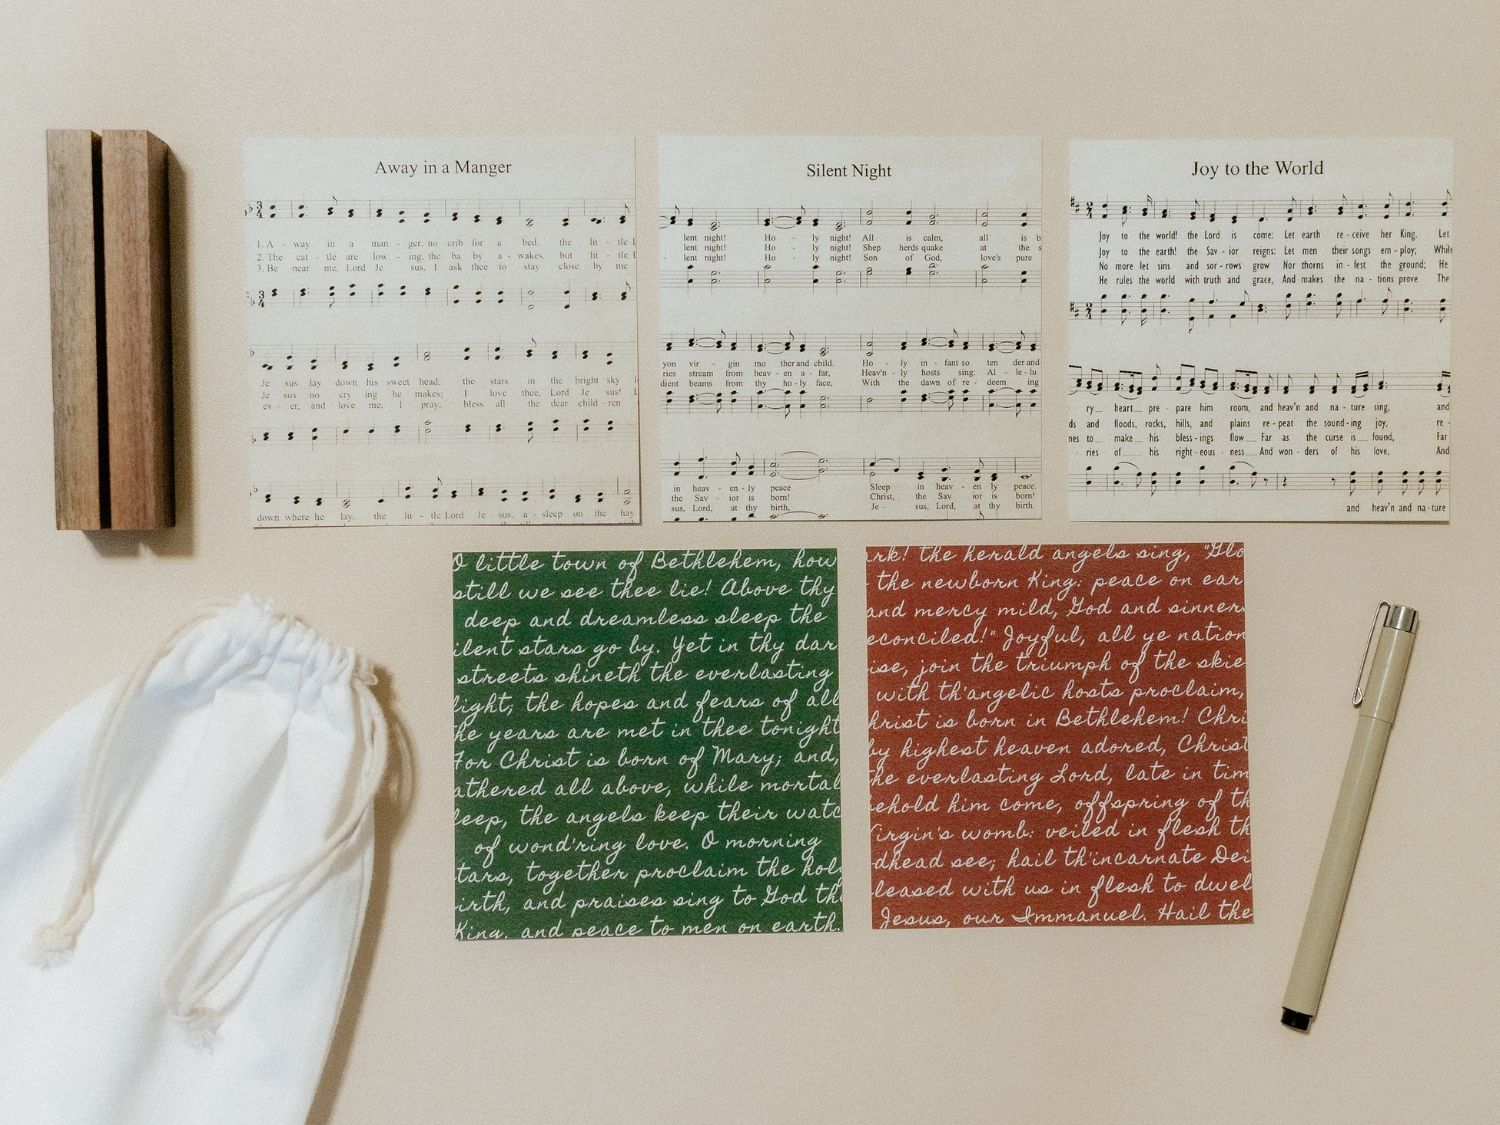 Away in a Manger
1. A - way in a man - ger, no crib for a bed, the lit - tle L
2. The cat - tle are low - ing, the ba by a - wakes, but lit - tle
3. Be near me, Lord Je sus, I ask thee to stay close by me
Je sus lay down his sweet head; the stars in the bright sky l
Je sus no cry ing he makes; I love thee, Lord Je sus! L
ev - er, and love me, I pray; bless all the dear child - ren
down where he lay, the lit - tle Lord Je - sus, a - sleep on the hay.
Silent Night
lent night! Ho - ly night! All is calm, all is b
lent night! Ho - ly night! Shep herds quake at the s
lent night! Ho - ly night! Son of God, love's pure
yon vir - gin mo ther and child. Ho - ly in - fant so ten der and
ries stream from heav - en a - far, Heav'n - ly hosts sing: Al - le - lu
dient beams from thy ho - ly face, With the dawn of re - deem ing
in heav - en - ly peace Sleep in heav - en ly peace.
the Sav - ior is born! Christ, the Sav ior is born!
sus, Lord, at thy birth, Je - sus, Lord, at thy birth.
Joy to the World
Joy to the world! the Lord is come: Let earth re - ceive her King, Let
Joy to the earth! the Sav - ior reigns: Let men their songs em - ploy; While
No more let sins and sor - rows grow Nor thorns in - fest the ground; He
He rules the world with truth and grace, And makes the na - tions prove The
ry__ heart__ pre - pare him room, and heav'n and na - ture sing, and
ds and floods, rocks, hills, and plains re - peat the sound - ing joy, re -
nes to__ make__ his bless - ings flow__ Far as the curse is__ found, Far
- ries of__ his right - eous - ness__ And won - ders of his love, And
and heav'n and na - ture
O little town of Bethlehem, how
still we see thee lie! Above thy
deep and dreamless sleep the
ilent stars go by. Yet in thy dar
streets shineth the everlasting
light; the hopes and fears of all
he years are met in thee tonight
For Christ is born of Mary; and,
athered all above, while mortal
leep, the angels keep their watc
of wond'ring love. O morning
tars, together proclaim the hol
irth, and praises sing to God th
King, and peace to men on earth.
rk! the herald angels sing, "Glo
the newborn King: peace on ear
and mercy mild, God and sinner
econciled!" Joyful, all ye nation
ise, join the triumph of the skie
with th'angelic hosts proclaim,
hrist is born in Bethlehem! Chri
by highest heaven adored, Christ
the everlasting Lord, late in tim
ehold him come, offspring of th
Virgin's womb: veiled in flesh th
dhead see; hail th'incarnate Dei
leased with us in flesh to dwel
Jesus, our Immanuel. Hail the